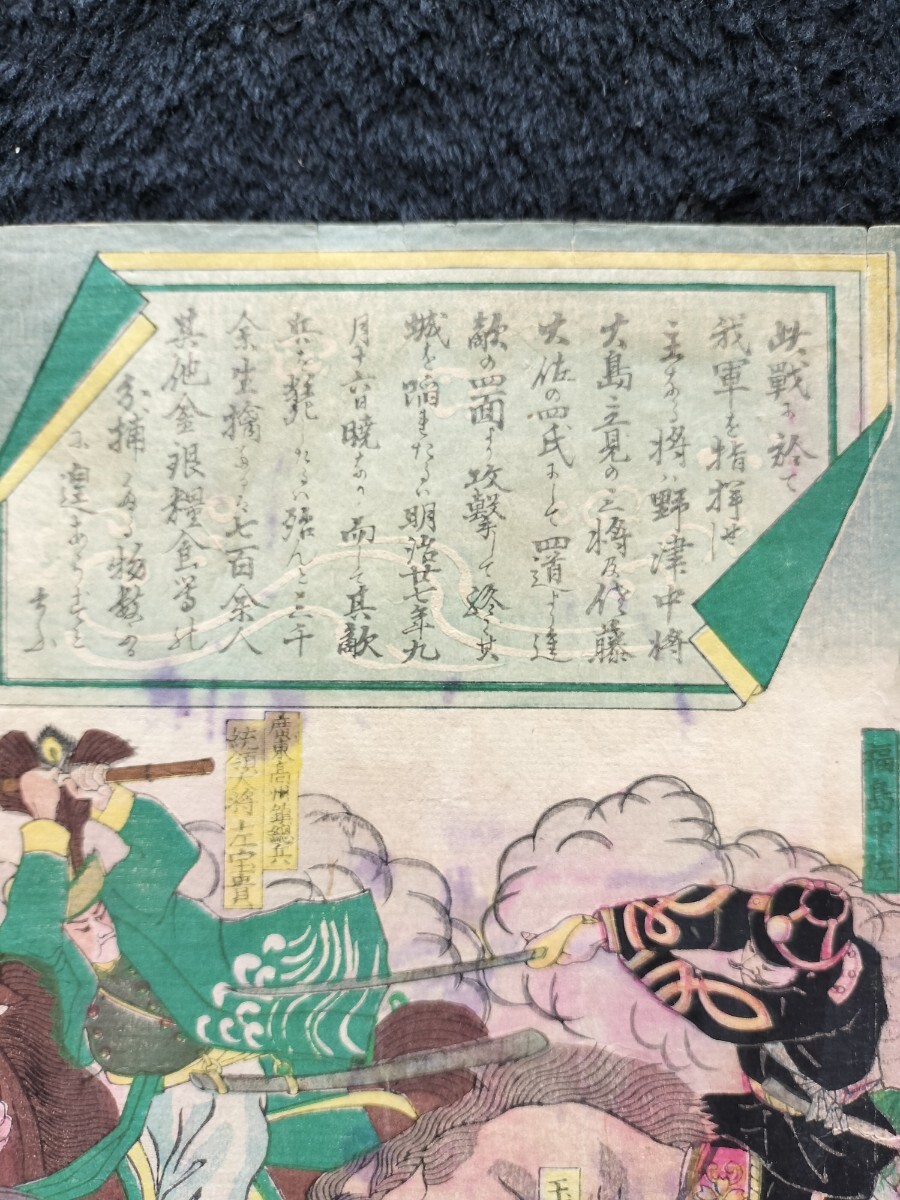 此戦に於て
我軍を指揮せ
主なる将ハ野津中将
大島立見の三将及佐藤
大佐の四氏にして四道より進
敵の四面より攻撃して終に其
城を陥れたるハ明治廿七年九
月十六日暁なり而して其敵
兵を斃したるハ殆んど三千
余生擒なるハ七百余人
其他金銀糧食等の
分捕なる物数る
に遑あらずと
云ふ
廣東高州鎮總兵
統領大将左宝貴
福島中佐
玉